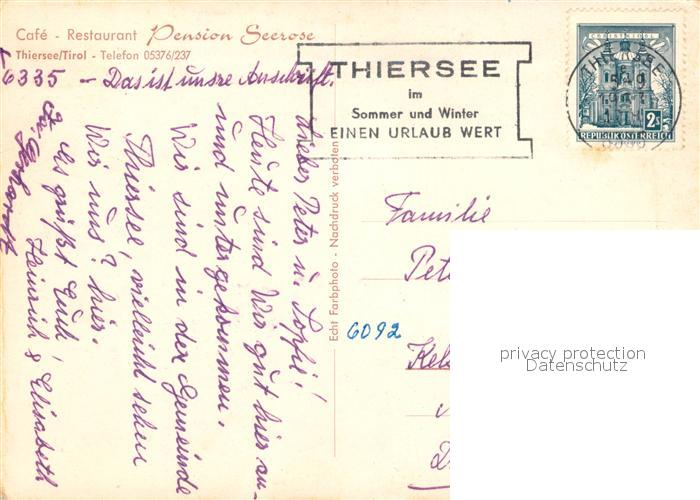 Café - Restaurant Pension Seerose
Thiersee/Tirol - Telefon 05376/237
6335 - Das ist unsre Anschrift.
THIERSEE
im
Sommer und Winter
EINEN URLAUB WERT
CHRISTKINDL
2S
REPUBLIK ÖSTERREICH
Lieber Peter u. Sophie!
Heute sind wir gut hier an-
und untergekommen.
Wir sind in der Gemeinde
Thiersee, vielleicht sehen
wir uns? hier.
Es grüßt Euch!
Heinrich & Elisabeth
Echt Farbphoto - Nachdruck verboten
Familie
Pet
6092
Kel
privacy protection
Datenschutz